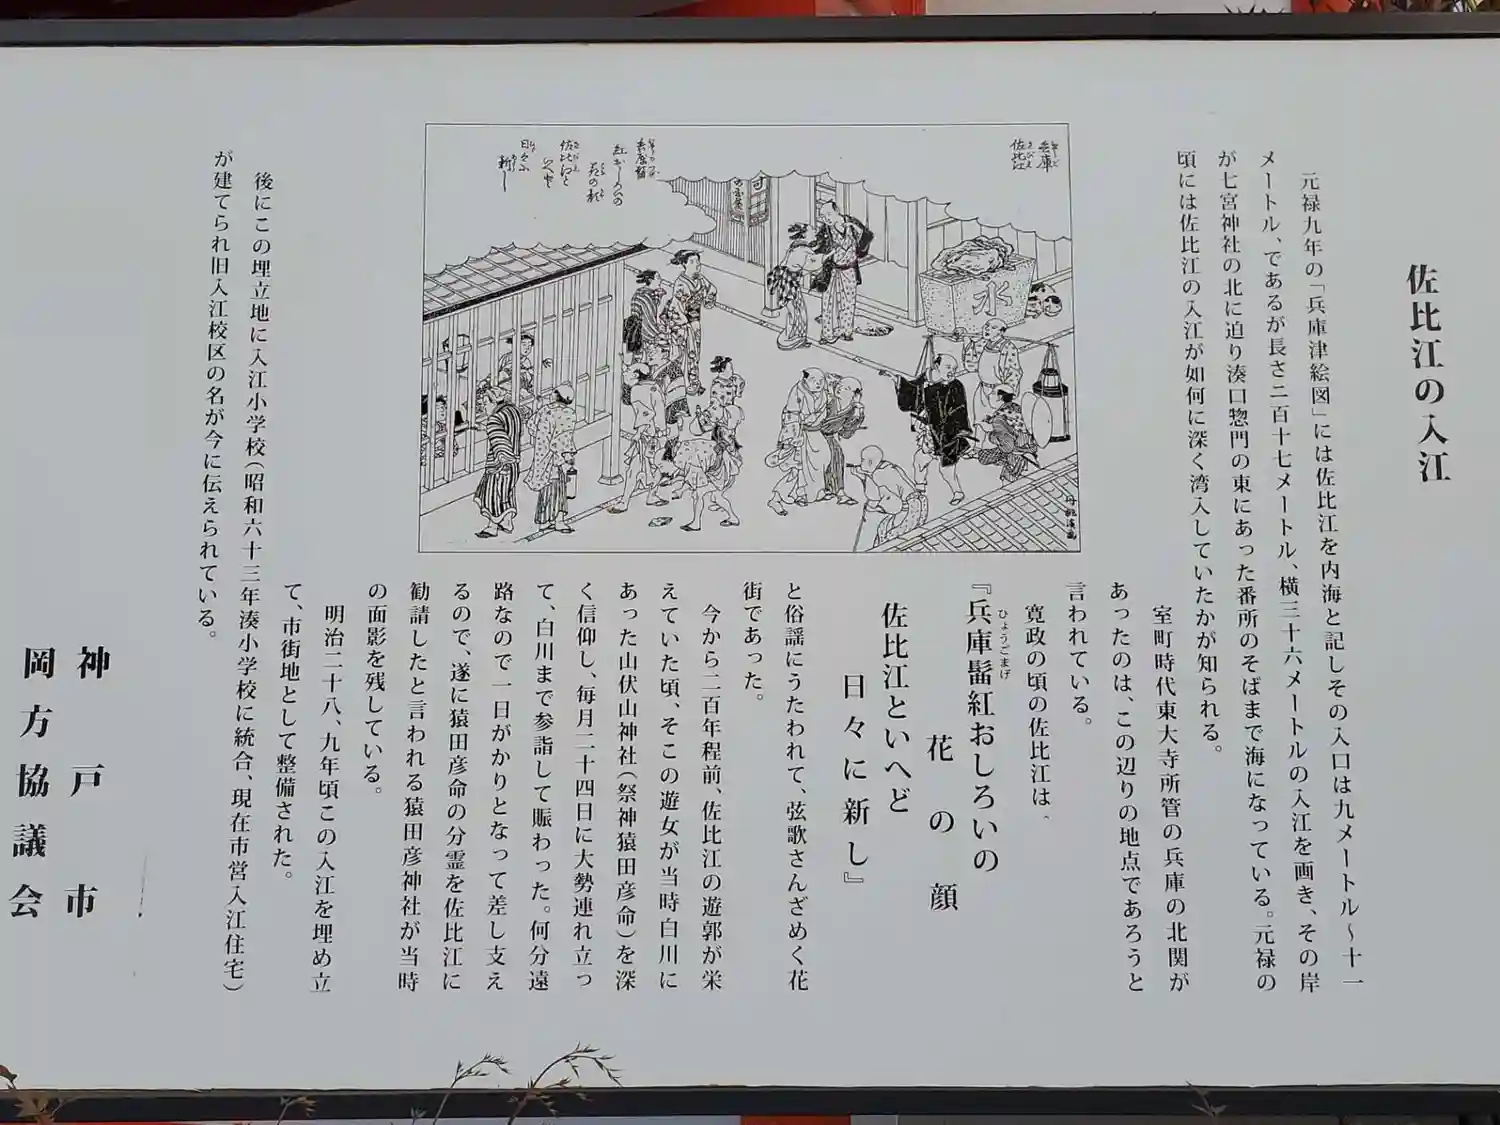 佐比江の入江
元禄九年の「兵庫津絵図」には佐比江を内海と記しその入口は九メートル～十一
メートル、であるが長さ二百十七メートル、横三十六メートルの入江を画き、その岸
が七宮神社の北に迫り湊口惣門の東にあった番所のそばまで海になっている。元禄の
頃には佐比江の入江が如何に深く湾入していたかが知られる。
室町時代東大寺所管の兵庫の北関が
あったのは、この辺りの地点であろうと
言われている。
寛政の頃の佐比江は、
『兵庫髷紅おしろいの
ひょうごまげ
花の顔
佐比江といへど
日々に新し』
と俗謡にうたわれて、弦歌さんざめく花
街であった。
今から二百年程前、佐比江の遊郭が栄
えていた頃、そこの遊女が当時白川に
あった山伏山神社(祭神猿田彦命)を深
く信仰し、毎月二十四日に大勢連れ立っ
て、白川まで参詣して賑わった。何分遠
路なので一日がかりとなって差し支え
るので、遂に猿田彦命の分霊を佐比江に
勧請したと言われる猿田彦神社が当時
の面影を残している。
明治二十八、九年頃この入江を埋め立
て、市街地として整備された。
後にこの埋立地に入江小学校(昭和六十三年湊小学校に統合、現在市営入江住宅)
が建てられ旧入江校区の名が今に伝えられている。
神戸市
岡方協議会
兵庫
佐比江
水